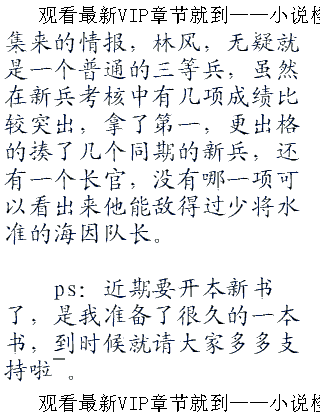 观看最新VIP章节就到——小说检
集来的情报，林风，无疑就
是一个普通的三等兵，虽然
在新兵考核中有几项成绩比
较突出，拿了第一，更出格
的揍了几个同期的新兵，还
有一个长官，没有哪一项可
以看出来他能敌得过少将水
准的海因队长。
ps：近期要开本新书
了，是我准备了很久的一本
书，到时候就请大家多多支
持啦~。
观看最新VIP章节就到——小说检